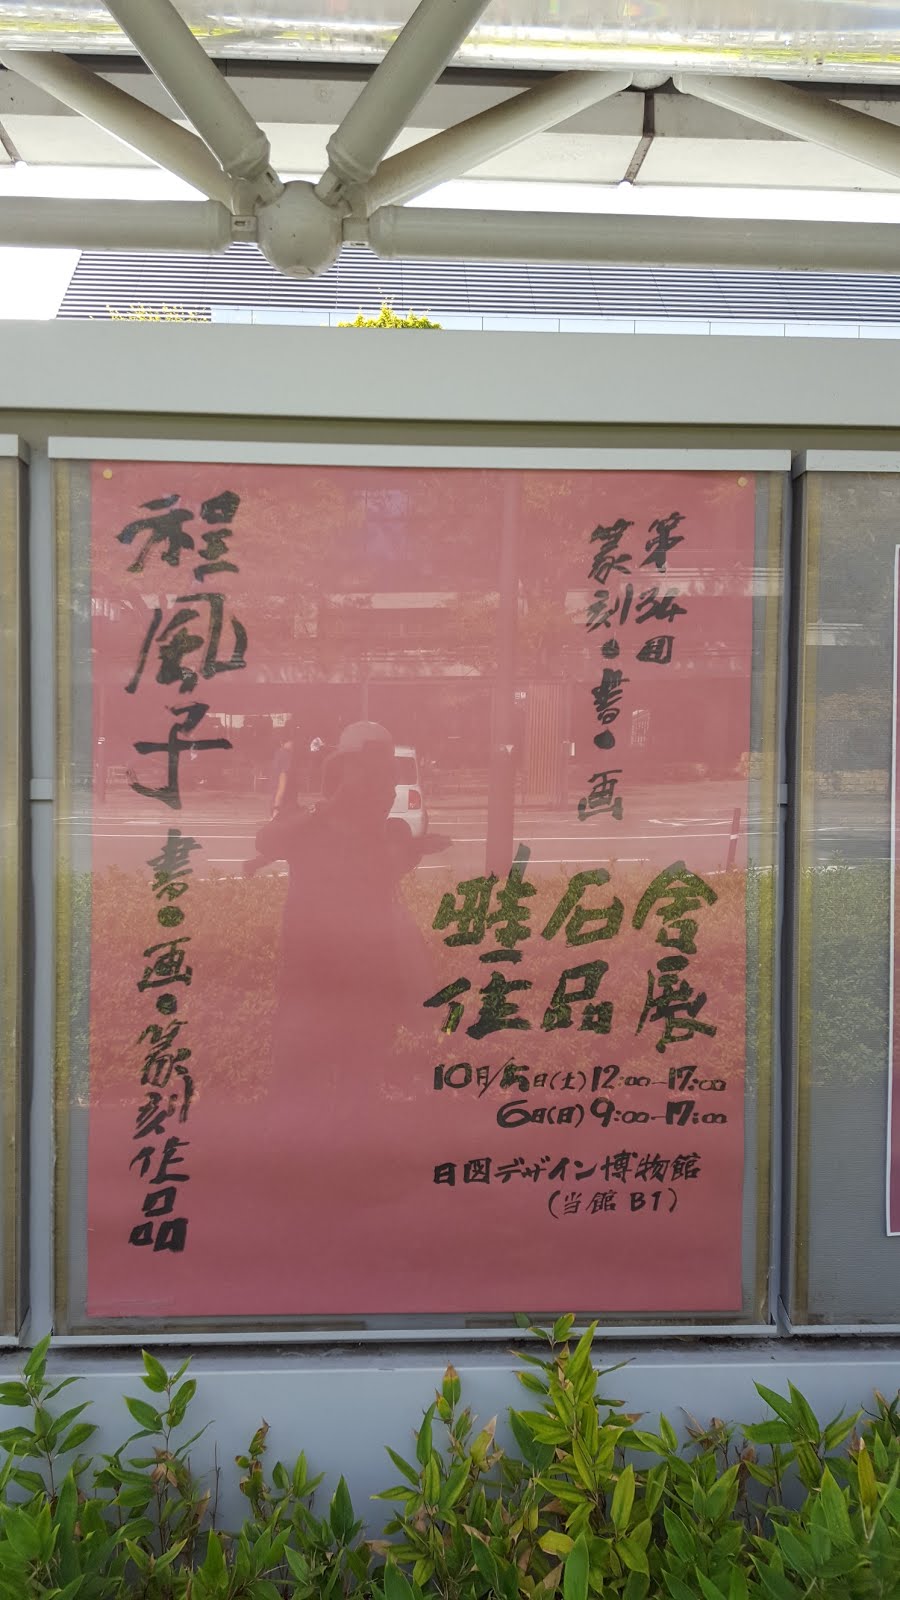 第34回
篆刻・書・画
畦石舎
作品展
10月/5日(土)12:00-17:00
6日(日)9:00-17:00
日図デザイン博物館
(当館B1)
程風子書・画・篆刻作品